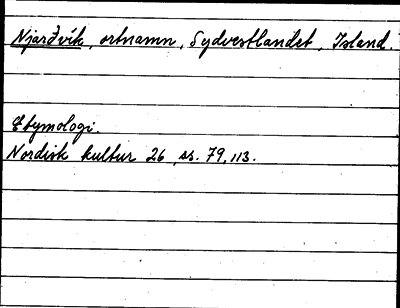 Njarðvík, ortnamn, Sydvestlandet, Island.
Etymologi.
Nordisk kultur 26, ss. 79, 113.